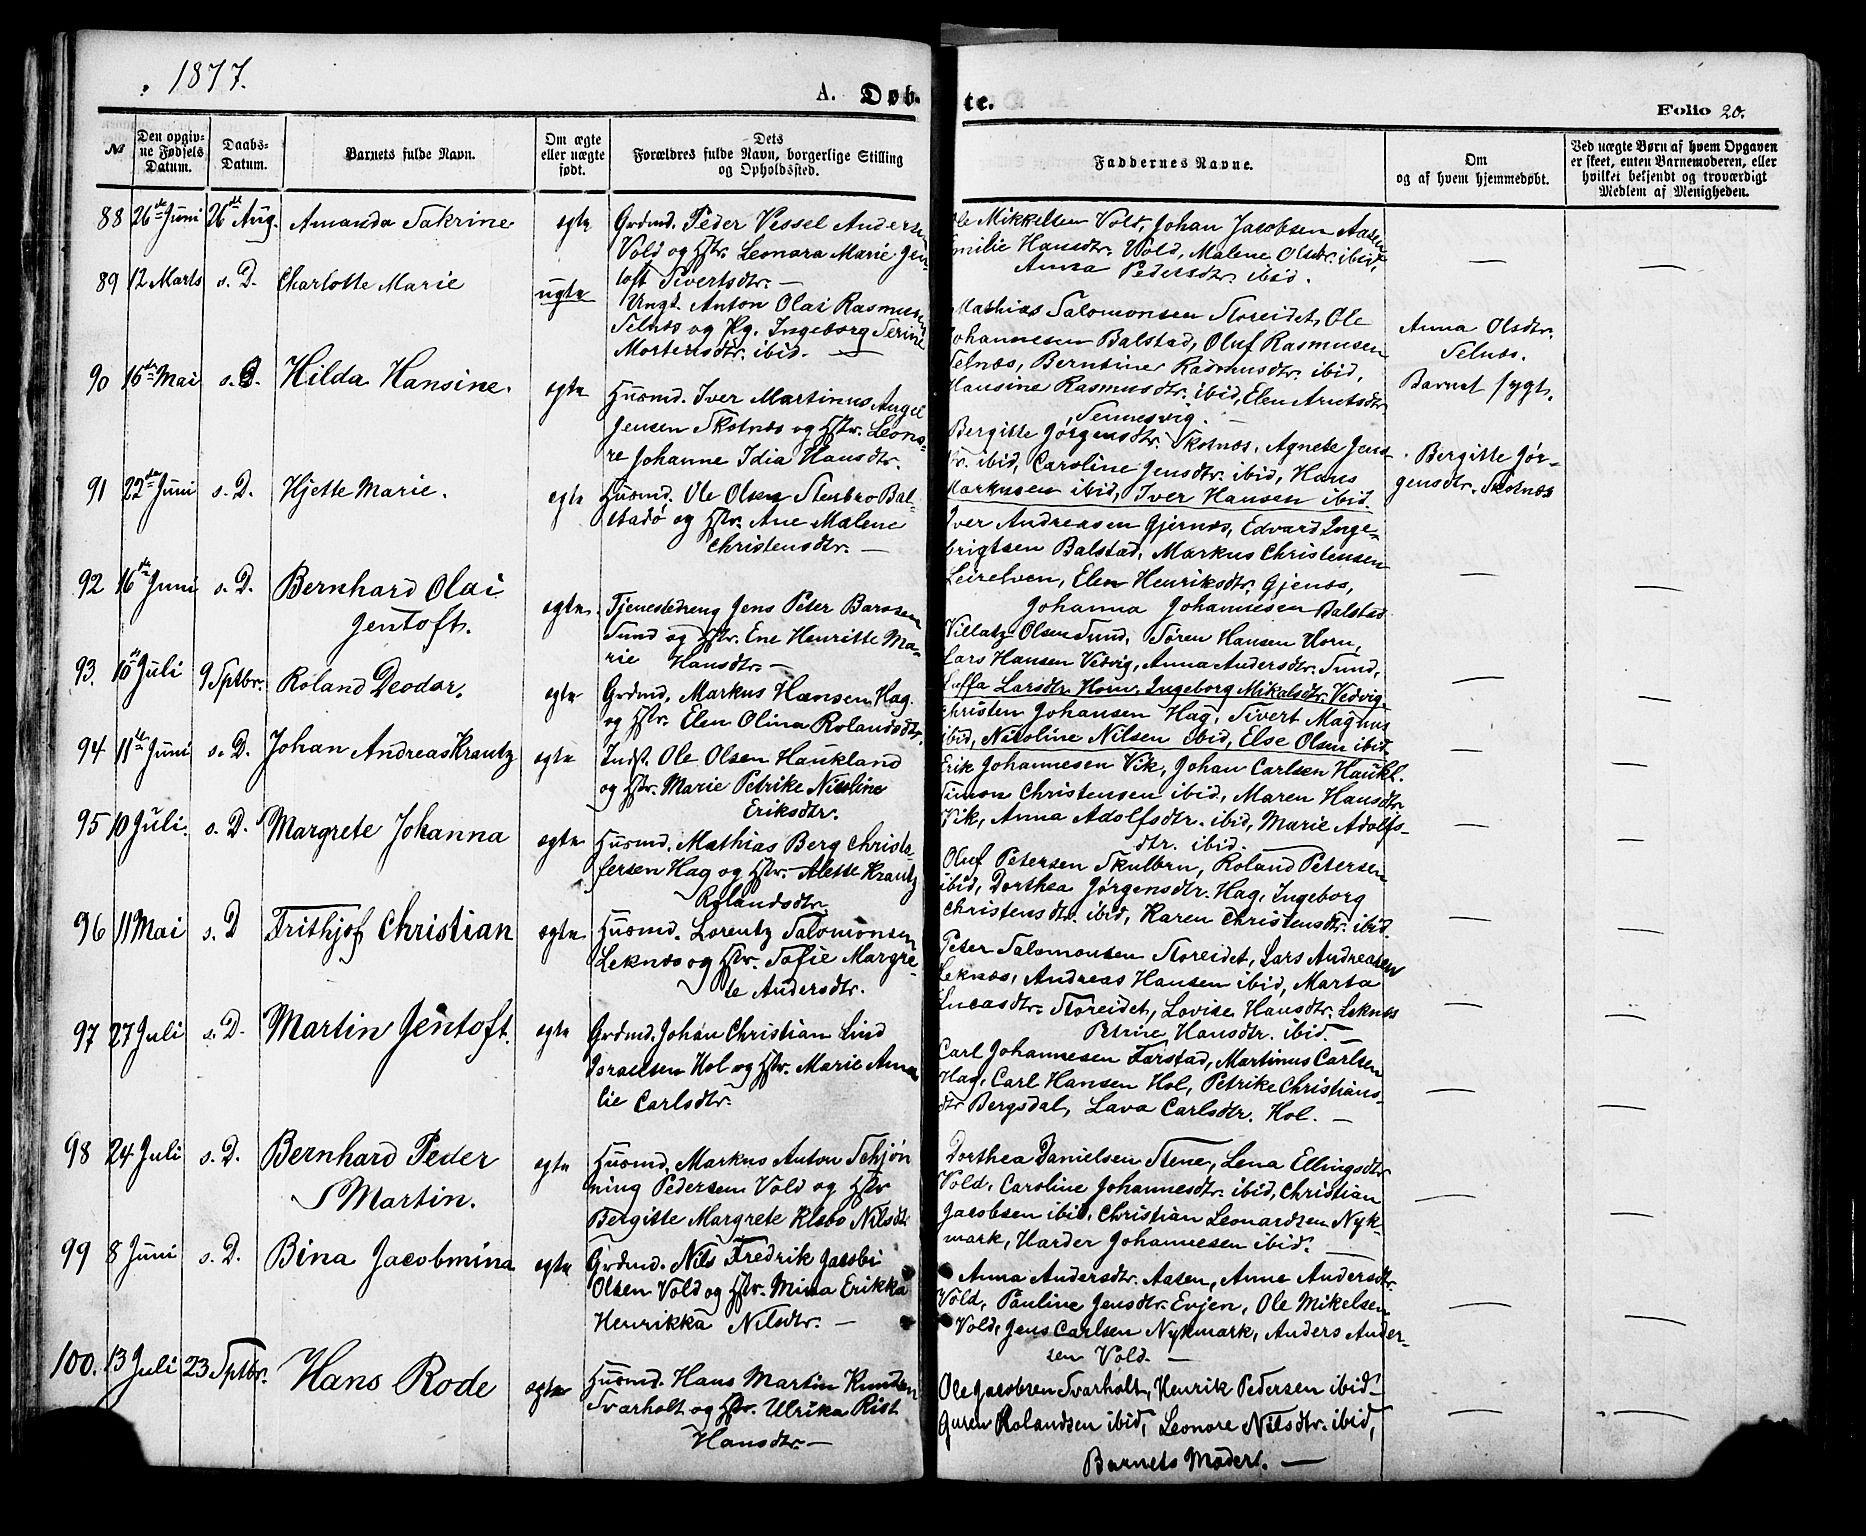 1877.
A. Døb-
te.
Folio 20.
№
Den opgiv-
ne Fødsels
Datum.
Daabs-
Datum.
Barnets fulde Navn.
Om ægte
eller uægte
født.
Dets
Forældres fulde Navn, borgerlige Stilling
og Opholdssted.
Faddernes Navne.
Om
og af hvem hjemmedøbt.
Ved uægte Børn af hvem Opgaven
er skeet, enten Barnemoderen, eller
hvilket bekjendt og troværdigt
Medlem af Menigheden.
88 26de Juni 26de Aug. Amanda Sakrine egte
Grdmd. Peder Vessel Andersen
Vold og Hstr. Leonara Marie Jen-
toft Sivertsdtr. —
Ole Mikkelsen Vold, Johan Jacobsen Aasen
Emilie Hansdtr. Vold, Malene Olsdtr. ibid,
Anna Pedersdtr. ibid.
89 12 Marts s. D. Charlotte Marie ugte
Ungk. Anton Olai Rasmusen
Selnæs og Pg. Ingeborg Serine
Mortensdtr. ibid. —
Mathias Salomonsen Storeidet, Ole
Johannesen Balstad, Oluf Rasmusen
Selnæs, Berntine Rasmusdtr. ibid,
Hansine Rasmusdtr. ibid, Elen Arntsdtr
Sennesvig. —
Anna Olsdtr.
Selnæs.
Barnet sygt.
90 16de Mai s. D. Hilda Hansine. egte
Husmd. Iver Martinus Angel
Jensen Skotnæs og Hstr. Leono-
re Johanne Idia Hansdtr.
Bergitte Jørgensdtr. Skotnæs, Agnete Jens-
dtr. ibid, Caroline Jensdtr. ibid, Hans
Markusen ibid, Iver Hansen ibid.
Bergitte Jør-
gensdtr. Skotnæs
91 22de Juni s. D. Hjette Marie. egte
Husmd. Ole Olsen Stenbro Bal-
stadø og Hstr. Ane Malene
Christensdtr. —
Iver Andreasen Gjernæs, Edvard Inge-
brigtsen Balstad, Markus Christensen
Leirelven, Elen Henriksdtr. Gjenæs,
Johanna Johannesen Balstad
92 16de Juni s. D. Bernhard Olai
Jentoft. egte.
Tjenestedreng Jens Peter Barosen
Sund og Hstr. Ene Henritte Ma-
rie Hansdtr. —
Villatz Olsen Sund, Søren Hansen Horn,
Lars Hansen Vedvig, Anna Andersdtr. Sund,
Larsdtr. Horn, Ingeborg Mikalsdtr. Vedvig.
93. 10de Juli 9 Sptbr. Roland Deodor. egte
Grdmd. Markus Hansen Hag
og Hstr. Elen Olina Rolandsdtr.
Christen Johansen Hag, Sivert Magnus
ibid, Nicoline Nilsen ibid, Else Olsen ibid.
94 11te Juni s. D. Johan Andreas Krantz egte
Indst. Ole Olsen Haukland
og Hstr. Marie Petrike Nicoline
Eriksdtr.
Erik Johannesen Vik, Johan Carlsen Haukl.
Simon Christensen ibid, Maren Hansdtr
Vik, Anna Adolfsdtr. ibid, Marie Adolfs-
dtr. ibid.
95 10 Juli. s. D. Margrete Johanna egte
Husmd. Mathias Berg Christo-
fersen Hag og Hstr. Alette Krantz
Rolandsdtr.
Oluf Petersen Skulbru, Roland Petersen
ibid, Dorthea Jørgensdtr. Hag, Ingeborg
Christensdtr. ibid, Karen Christensdtr. ibid.
96 11 Mai s. D Frithjof Christian egte
Husmd. Lorentz Salomonsen
Leknæs og Hstr. Sofie Margre-
te Andersdtr.
Peter Salomonsen Storeidet, Lars Andreasen
Leknæs, Andreas Hansen ibid, Marta
Lucasdtr. Storeidet, Lovise Hansdtr. Leknæs
Petrine Hansdtr. ibid. —
97 27 Juli s. D. Martin Jentoft. egte
Grdmd. Johan Christian Lind
Israelsen Hol og Hstr. Marie Ama-
lie Carlsdtr.
Carl Johannesen Farstad, Martinus Carlsen
Hag, Carl Hansen Hol, Petrike Christians-
dtr Bergsdal, Lava Carlsdtr. Hol. —
98 24 Juli s. D. Bernhard Peder
Martin. egte
Husmd. Markus Anton Schjøn
ning Pedersen Vold og Hstr
Bergitte Margrete Klæbo Nilsdtr
Dorthea Danielsen Stene, Lena Ellingsdtr
Vold, Caroline Johannesdtr. ibid, Christian
Jacobsen ibid, Christian Leonardsen Nyk-
mark, Harder Johannesen ibid. —
99 8 Juni s. D. Bina Jacobmina egte
Grdmd. Nils Fredrik Jacobi
Olsen Vold og Hstr. Mina Erikka
Henrikka Nilsdtr. —
Anna Andersdtr. Aasen, Anne Andersdtr.
Vold, Pauline Jensdtr. Evjen, Ole Mikelsen
Vold, Jens Carlsen Nykmark, Anders Ander-
sen Vold. —
100. 13 Juli 23 Sptbr. Hans Rode egte
Husmd. Hans Martin Knudsen
Svarholt og Hstr. Ulrika Rist
Hansdtr. —
Ole Jacobsen Svarholt, Henrik Pedersen ibid
Guren Rolandsen ibid, Leonore Nilsdtr. ibid,
Barnets Moder. —